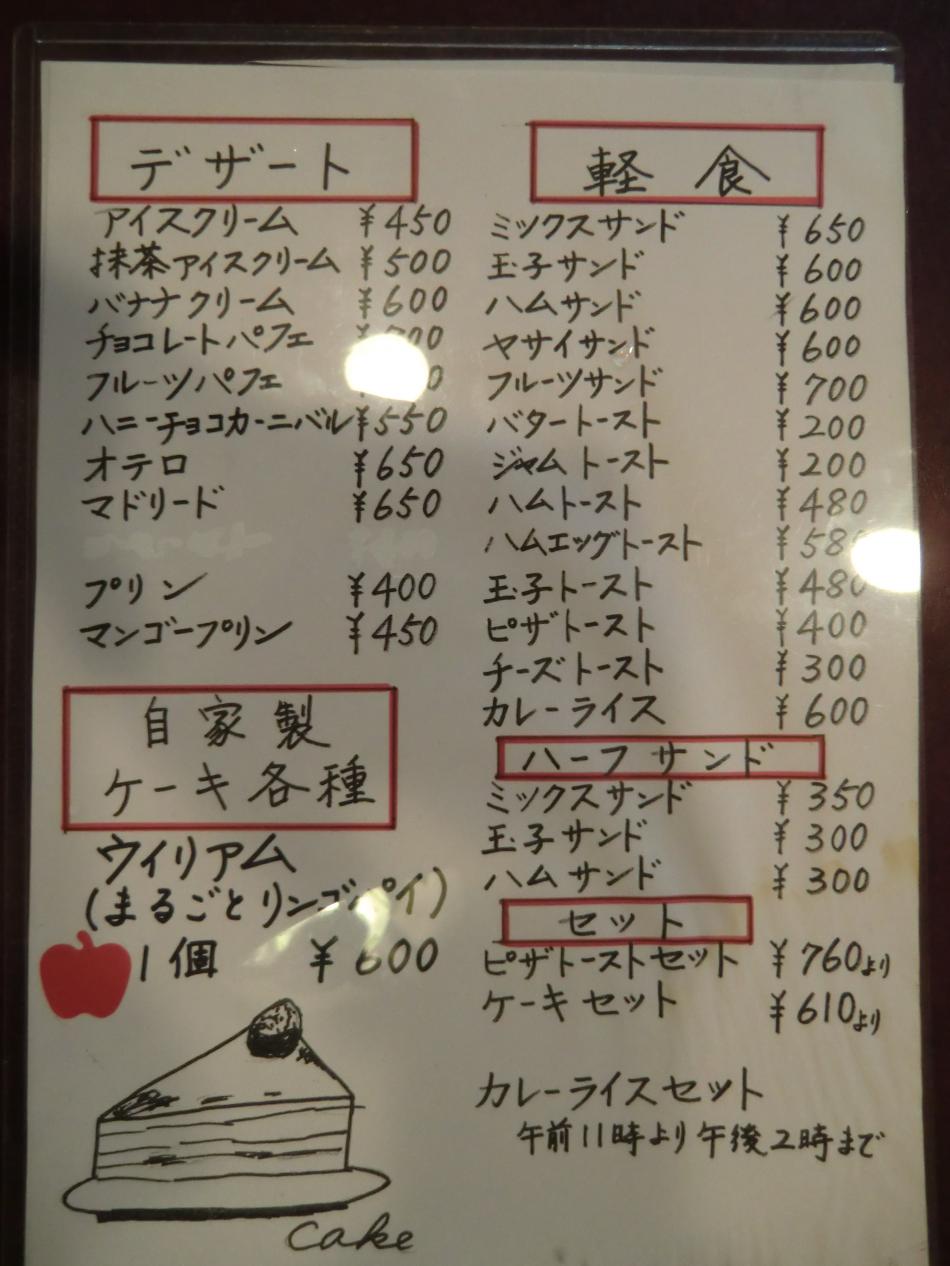 デザート
アイスクリーム ¥450
抹茶アイスクリーム ¥500
バナナクリーム ¥600
チョコレートパフェ
フルーツパフェ
ハニーチョコカーニバル ¥550
オテロ ¥650
マドリード ¥650
プリン ¥400
マンゴープリン ¥450
自家製
ケーキ各種
ウィリアム
(まるごとリンゴパイ)
1個 ¥600
cake
軽食
ミックスサンド ¥650
玉子サンド ¥600
ハムサンド ¥600
ヤサイサンド ¥600
フルーツサンド ¥700
バタートースト ¥200
ジャムトースト ¥200
ハムトースト ¥480
ハムエッグトースト ¥580
玉子トースト ¥480
ピザトースト ¥400
チーズトースト ¥300
カレーライス ¥600
ハーフサンド
ミックスサンド ¥350
玉子サンド ¥300
ハムサンド ¥300
セット
ピザトーストセット ¥760より
ケーキセット ¥610より
カレーライスセット
午前11時より午後2時まで